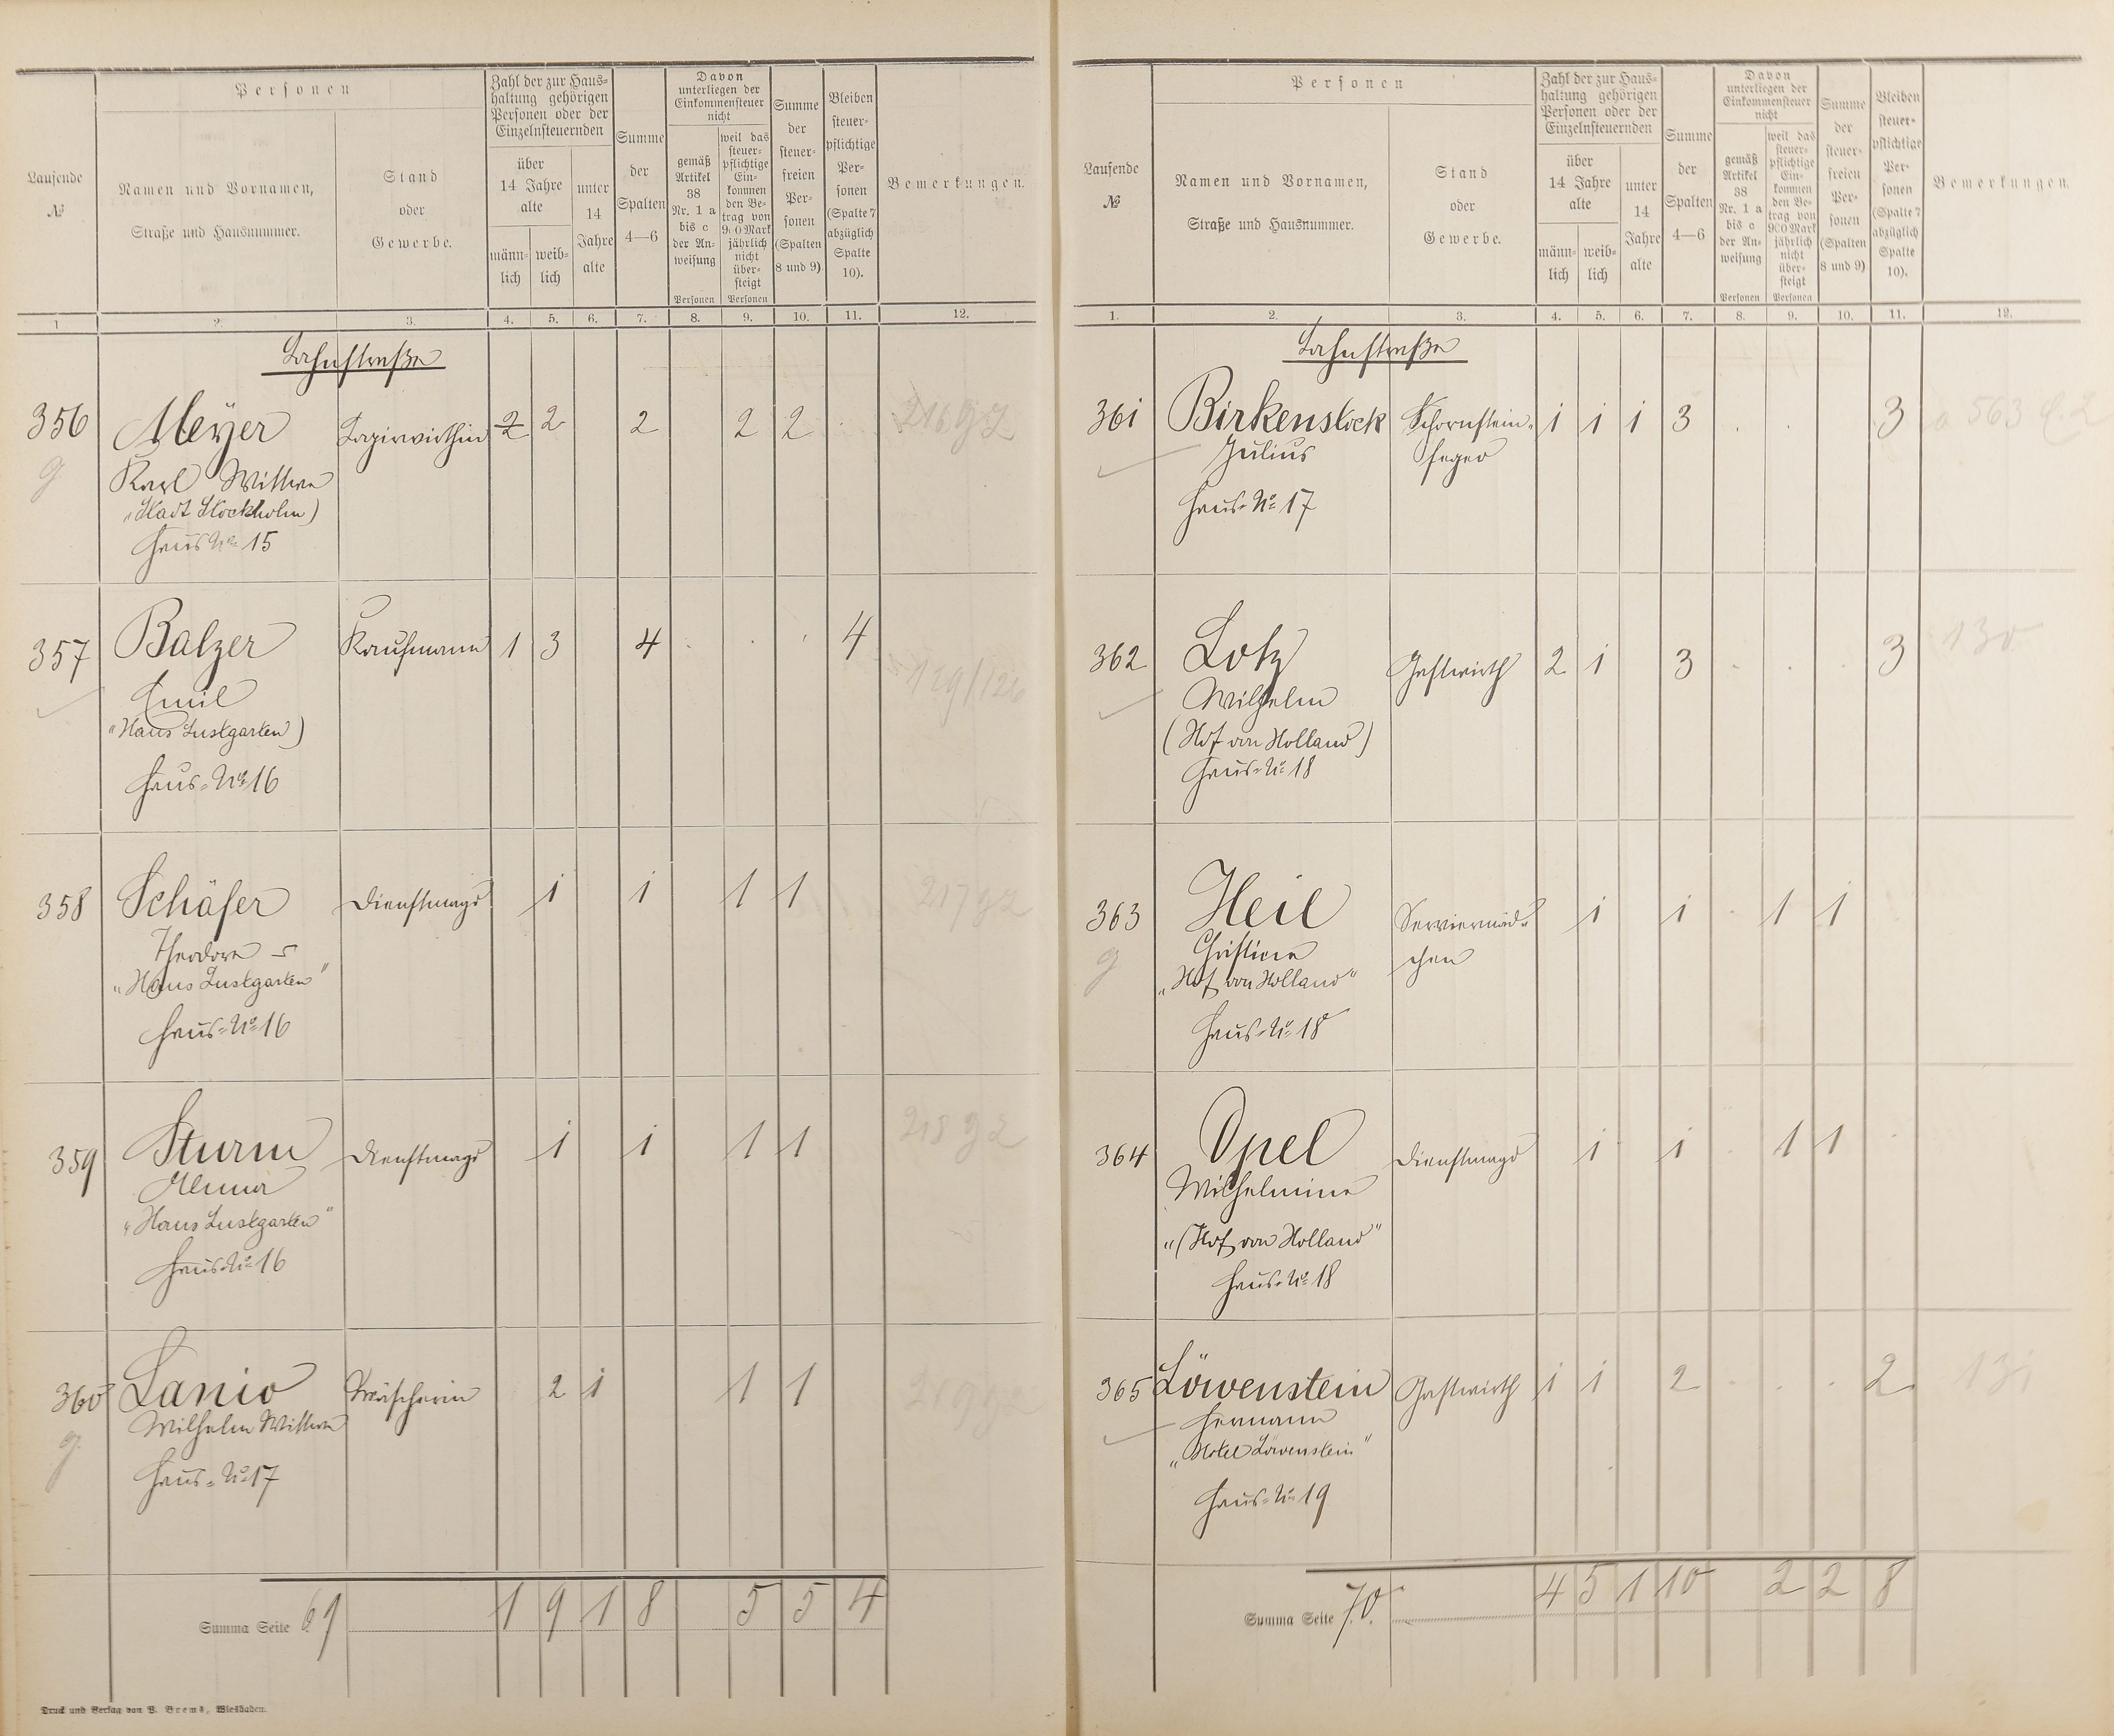 Personen
Laufende
№
Namen und Vornamen,
Straße und Hausnummer.
Stand
oder
Gewerbe.
Zahl der zur Haus-
haltung gehörigen
Personen oder der
Einzelnsteuernden
über
14 Jahre
alte
männ-
lich
weib-
lich
unter
14
Jahre
alte
Summe
der
Spalten
4—6
Davon
unterliegen der
Einkommensteuer
nicht
gemäß
Artikel
38
Nr. 1 a
bis c
der An-
weisung
Personen
weil das
steuer-
pflichtige
Ein-
kommen
den Be-
trag von
900 Mark
jährlich
nicht
über-
steigt
Personen
Summe
der
steuer-
freien
Per-
sonen
(Spalten
8 und 9)
Bleiben
steuer-
pflichtige
Per-
sonen
(Spalte 7
abzüglich
Spalte
10).
Bemerkungen.
1 2. 3. 4. 5. 6. 7. 8. 9. 10. 11. 12.
Bahnstraße
356 Meyer Logirwirthin 2 2 2 2 2 216 g 2
g Karl Wittwe
"Stadt Stockholm)
Haus No 15
357 Balzer Kaufmann 1 3 4 4
Emil 129/126
"Haus Lustgarten)
Haus-No 16
358 Schäfer Dienstmagd 1 1 1 1 217 g 2
Theodore
"Haus Lustgarten"
Haus-No 16
359 Sturm Dienstmagd 1 1 1 1 218 g 2
"Haus Lustgarten"
Haus-No 16
360 Lanio Wäscherin 2 1 1 1 219 g 2
g Wilhelm Wittwe
Haus-No 17
Summa Seite 69 1 9 1 8 5 5 4
Druck und Verlag von P. Brems, Wiesbaden.
Personen
Laufende
№
Namen und Vornamen,
Straße und Hausnummer.
Stand
oder
Gewerbe.
Zahl der zur Haus-
haltung gehörigen
Personen oder der
Einzelnsteuernden
über
14 Jahre
alte
männ-
lich
weib-
lich
unter
14
Jahre
alte
Summe
der
Spalten
4—6
Davon
unterliegen der
Einkommensteuer
nicht
gemäß
Artikel
38
Nr. 1 a
bis c
der An-
weisung
Personen
weil das
steuer-
pflichtige
Ein-
kommen
den Be-
trag von
900 Mark
jährlich
nicht
über-
steigt
Personen
Summe
der
steuer-
freien
Per-
sonen
(Spalten
8 und 9)
Bleiben
steuer-
pflichtige
Per-
sonen
(Spalte 7
abzüglich
Spalte
10).
Bemerkungen.
1. 2. 3. 4. 5. 6. 7. 8. 9. 10. 11. 12.
Bahnstraße
361 Birkenstock Schornstein- 1 1 1 3 3 563
Julius feger
Haus-No 17
362 Lotz Gastwirth 2 1 3 3 130
Wilhelm
(Hof von Holland)
Haus-No 18
363 Heil Serviermäd- 1 1 1 1
g Christiane chen
"Hof von Holland"
Haus-No 18
364 Opel Dienstmagd 1 1 1 1
Wilhelmine
"(Hof von Holland"
Haus-No 18
365 Löwenstein Gastwirth 1 1 2 2 131
Hermann
"Hotel Löwenstein"
Haus-No 19
Summa Seite 70. 4 5 1 10 2 2 8